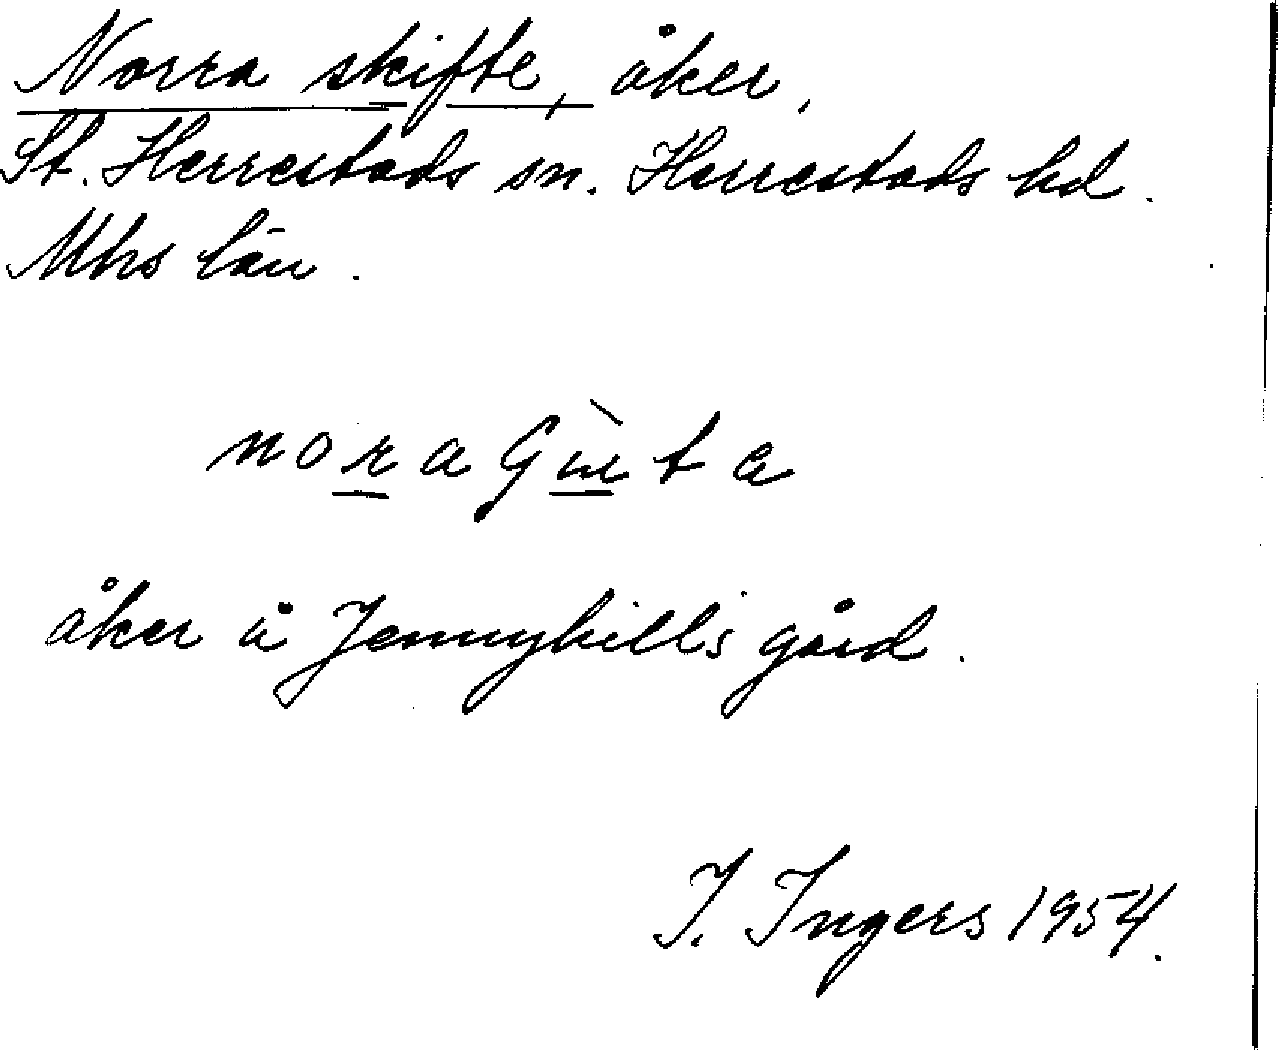 Norra skifte, åker.
St. Herrestads sn. Herrestads hd.
Mhs län.
åker å Jennyhills gård.
I. Ingers 1954.